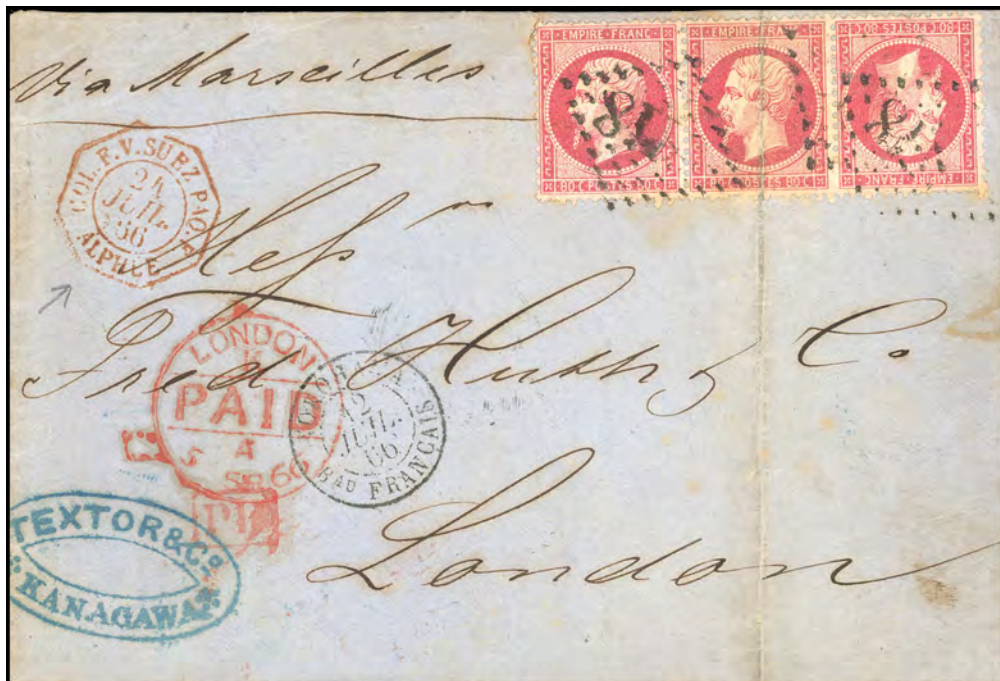 Via Marseilles
EMPIRE FRANC
80 C POSTES 80 C
EMPIRE FRANC
80 C POSTES 80 C
80 C POSTES 80 C
EMPIRE FRANC
COL. F. V. SUEZ PAQ. F.
24
JUIL.
66
ALPHÉE
Messrs
Fred Huth & Co
London
LONDON
PAID
A
5 SP 66
YOKOHAMA
12
JUIL.
66
BAU FRANÇAIS
PD
TEXTOR & Co.
KANAGAWA